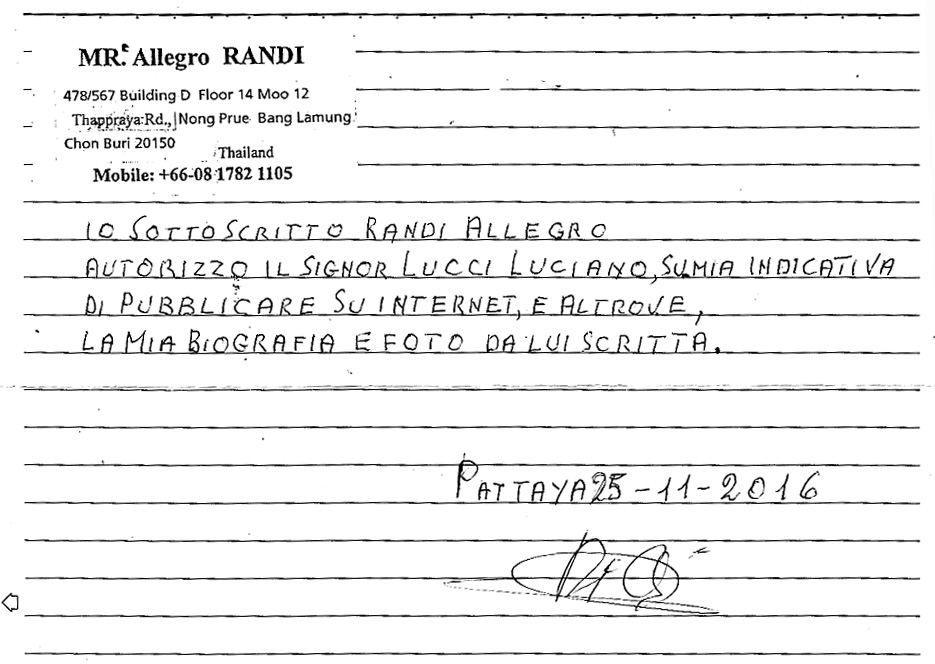 MR. Allegro RANDI
478/567 Building D Floor 14 Moo 12
Thappraya Rd., Nong Prue Bang Lamung
Chon Buri 20150
Thailand
Mobile: +66-08 1782 1105
IO SOTTOSCRITTO RANDI ALLEGRO
AUTORIZZO IL SIGNOR LUCCI LUCIANO, SU MIA INDICATIVA
DI PUBBLICARE SU INTERNET, E ALTROVE,
LA MIA BIOGRAFIA E FOTO DA LUI SCRITTA.
PATTAYA 25-11-2016